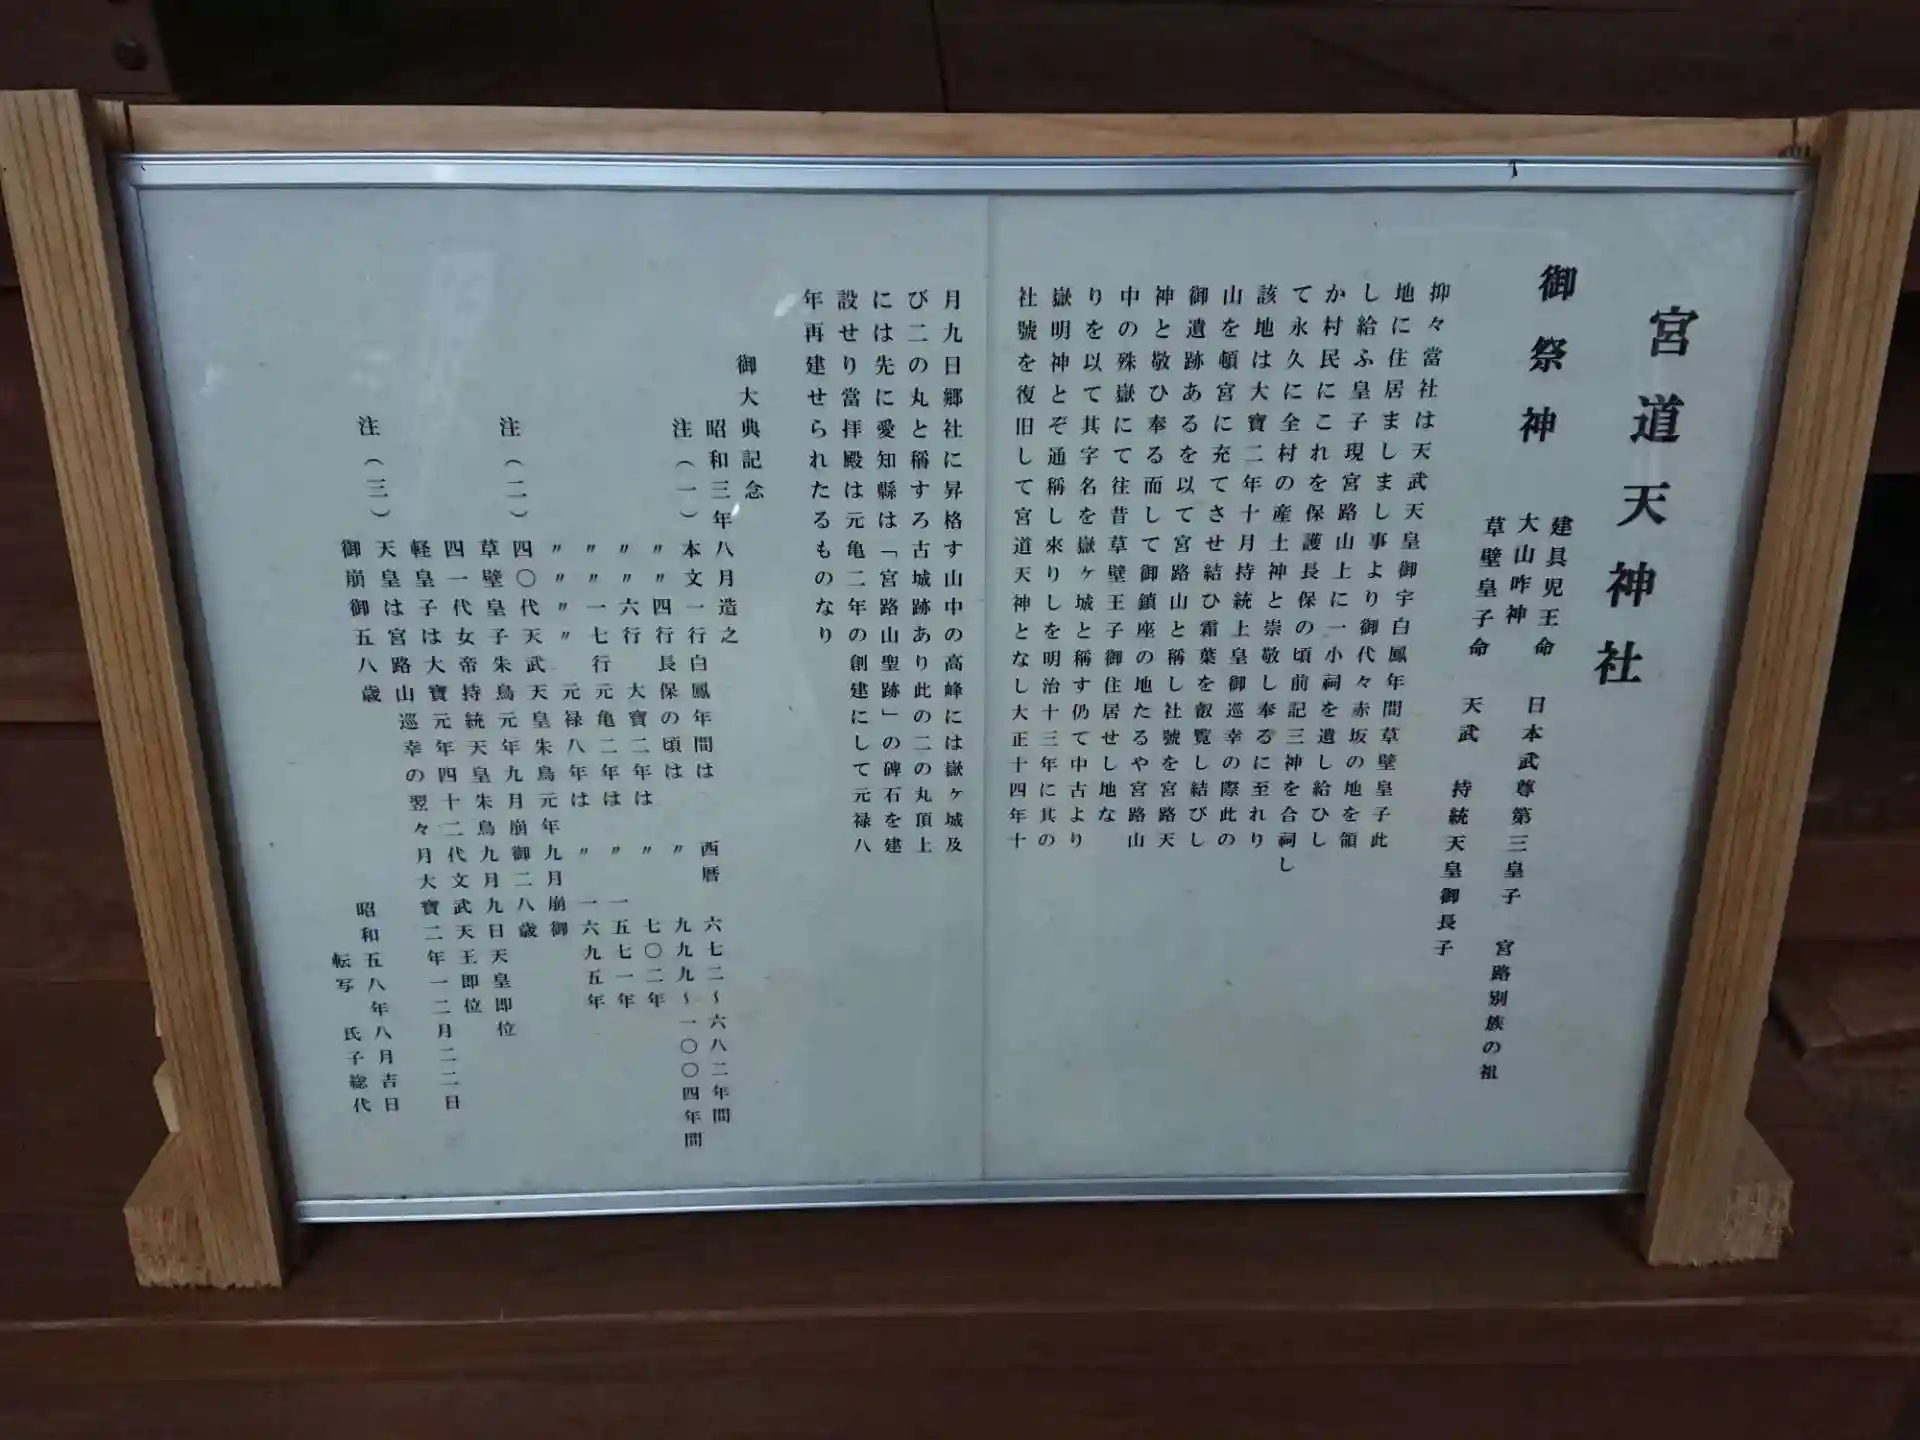 宮道天神社
御祭神
建具児王命 日本武尊第三皇子 宮路別族の祖
大山咋神
草壁皇子命 天武 持統天皇御長子
抑々當社は天武天皇御宇白鳳年間草壁皇子此
地に住居ましまし事より御代々赤坂の地を領
し給ふ皇子現宮路山上に一小祠を遺し給ひし
か村民にこれを保護長保の頃前記三神を合祠し
て永久に全村の産土神と崇敬し奉るに至れり
該地は大寶二年十月持統上皇御巡幸の際此の
山を頓宮に充てさせ結ひ霜葉を叡覧し結びし
御遺跡あるを以て宮路山と稱し社號を宮路天
神と敬ひ奉る而して御鎮座の地たるや宮路山
中の殊嶽にて往昔草壁王子御住居せし地な
りを以て其字名を嶽ヶ城と稱す仍て中古より
嶽明神とぞ通稱し來りしを明治十三年に其の
社號を復旧して宮道天神となし大正十四年十
月九日郷社に昇格す山中の高峰には嶽ヶ城及
び二の丸と稱すろ古城跡あり此の二の丸頂上
には先に愛知縣は「宮路山聖跡」の碑石を建
設せり當拝殿は元亀二年の創建にして元禄八
年再建せられたるものなり
御大典記念
昭和三年八月造之
注(一)本文一行白鳳年間は 西暦 六七二~六八二年間
〃〃四行長保の頃は 〃 九九九~一〇〇四年間
〃〃六行 大寶二年は 〃 七〇二年
〃〃一七行 元亀二年は 〃 一五七一年
〃〃〃 元禄八年は 〃 一六九五年
注(二)四〇代天武天皇朱鳥元年九月崩御
草壁皇子朱鳥元年九月崩御二八歳
四一代女帝持統天皇朱鳥九月九日天皇即位
軽皇子は大寶元年四十二代文武天王即位
注(三)天皇は宮路山巡幸の翌々月大寶二年一二月二二日
御崩御五八歳
昭和五八年八月吉日
転写 氏子総代